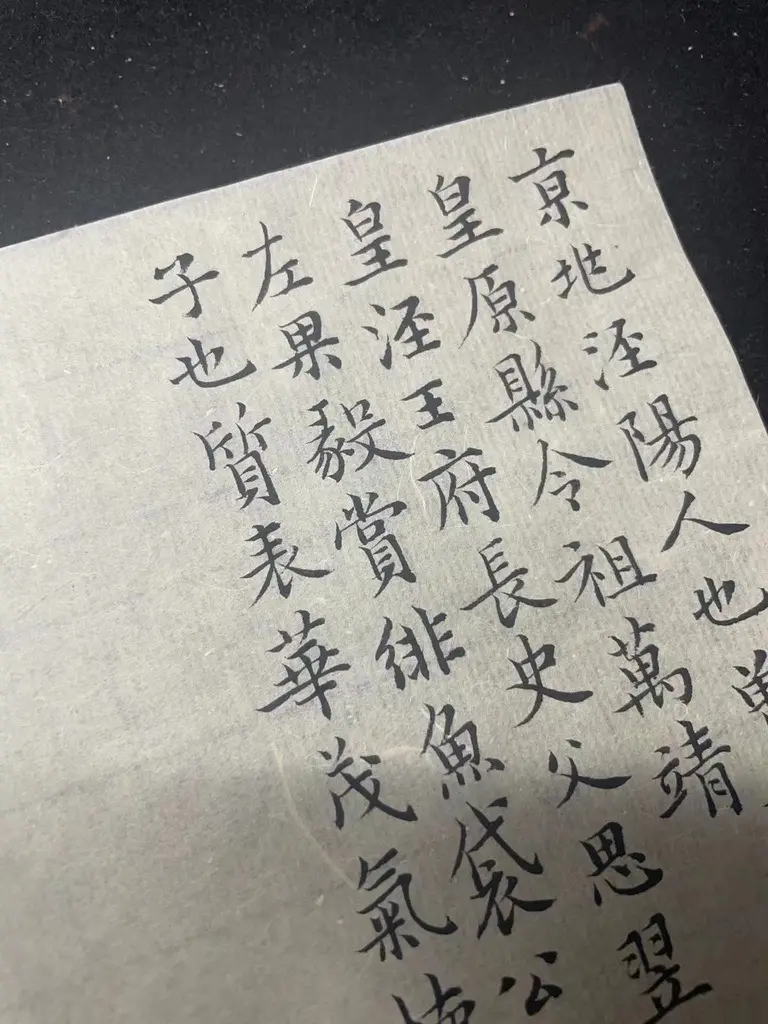 京兆涇陽人也
皇原縣令祖萬靖
皇涇王府長史父思翌
左果毅賞緋魚袋公
子也質表華茂氣